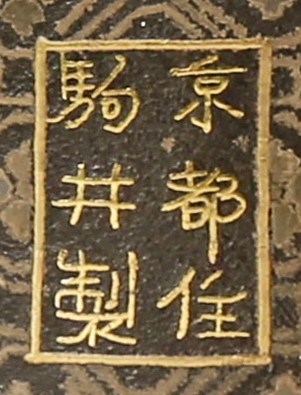 京都住
駒井製